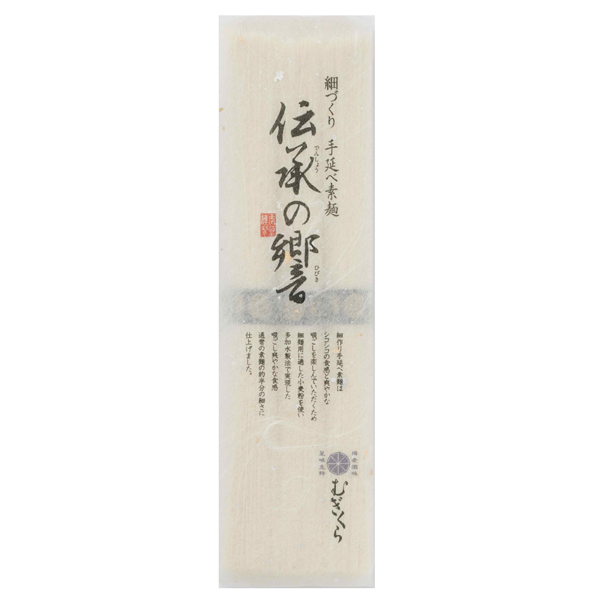 細づくり 手延べ素麺
伝承の響
でんしょう
ひびき
細作り手延べ素麺は
シコシコの食感と爽やかな
喉ごしを楽しんでいただくため
細麺用に適した小麦粉を使い
多加水製法で実現した
喉ごし爽やかな食感
通常の素麺の約半分の細さに
仕上げました。
むぎくら